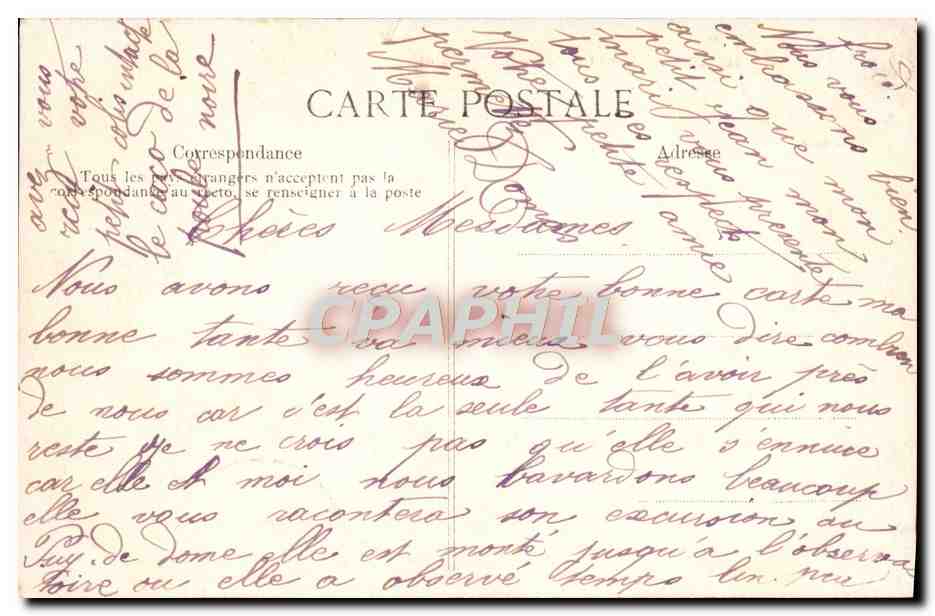 CARTE POSTALE
Correspondance
Adresse
Tous les pays étrangers n'acceptent pas la
correspondance au recto, se renseigner à la poste
Chères Mesdames
Nous avons reçu votre bonne carte ma
bonne tante va mieux vous dire combien
nous sommes heureux de l'avoir près
de nous car c'est la seule tante qui nous
reste je ne crois pas qu'elle s'ennuie
car elle et moi nous bavardons beaucoup
elle vous racontera son excursion au
Puy. de dome elle est monté jusqu'a l'observa
toire ou elle a observé temps un peu
froid bien
Nous vous
embrassons mon
ainsi que mon
petit Jean
mari vous présente
tous ses respects
Votre petite amie
avez vous
reçu votre
colis intact
le caco de la
noire
CPAPHIL